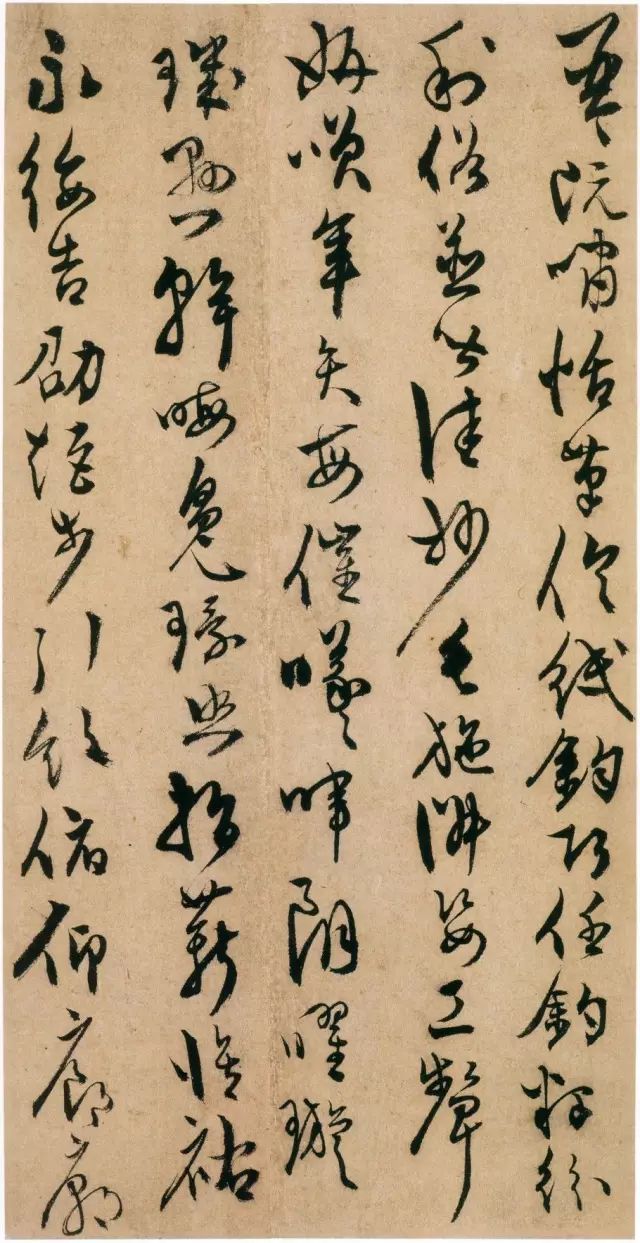 琴阮嘯恬筆倫紙鈞巧任釣釋紛
利俗並皆佳妙毛施淑姿工顰
妍咲年矢每催曦暉朗曜璇
璣懸斡晦魄環照指薪修祜
永綏吉劭矩步引領俯仰廊廟